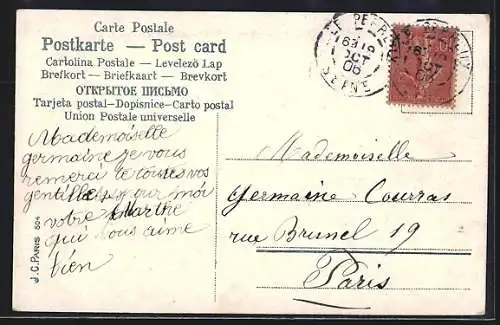 Carte Postale
Postkarte — Post card
Cartolina Postale — Levelező Lap
Brefkort — Briefkaart — Brevkort
ОТКРЫТОЕ ПИСЬМО
Tarjeta postal—Dopisnice—Carto postal
Union Postale universelle
Mademoiselle
germaine je vous
remerci de toutes vos
gentille pour moi
votre Marthe
qui vous aime
bien
J.C. PARIS 504
LE PERRE
19
OCT
06
SEINE
Mademoiselle
Germaine Courras
rue Brunel 19
Paris